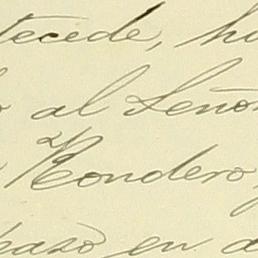 tecede, hu
o al Señor
Rondero,
paso en a